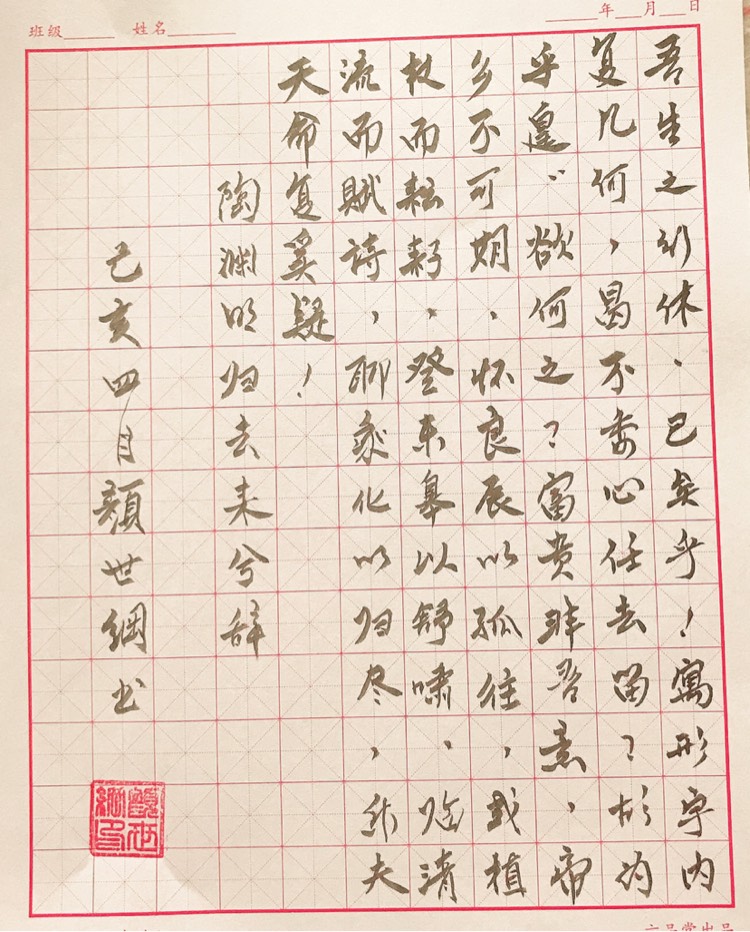 班级______ 姓名________
______年___月___日
吾生之行休、已矣乎！寓形宇内
复几何，曷不委心任去留？胡为
乎遑〻欲何之？富贵非吾愿，帝
乡不可期，怀良辰以孤往，或植
杖而耘耔，登东皋以舒啸，临清
流而赋诗，聊乘化以归尽，乐夫
天命复奚疑！
陶渊明归去来兮辞
己亥四月顏世綱书
顏世綱印